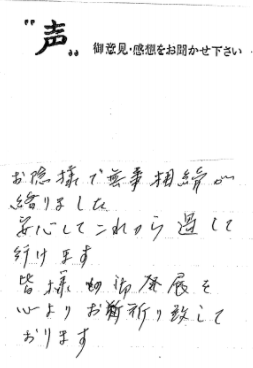 "声"
御意見・感想をお聞かせ下さい
お陰様で無事相続が
終りました
安心してこれから過して
行けます
皆様の御発展を
心よりお祈り致して
おります